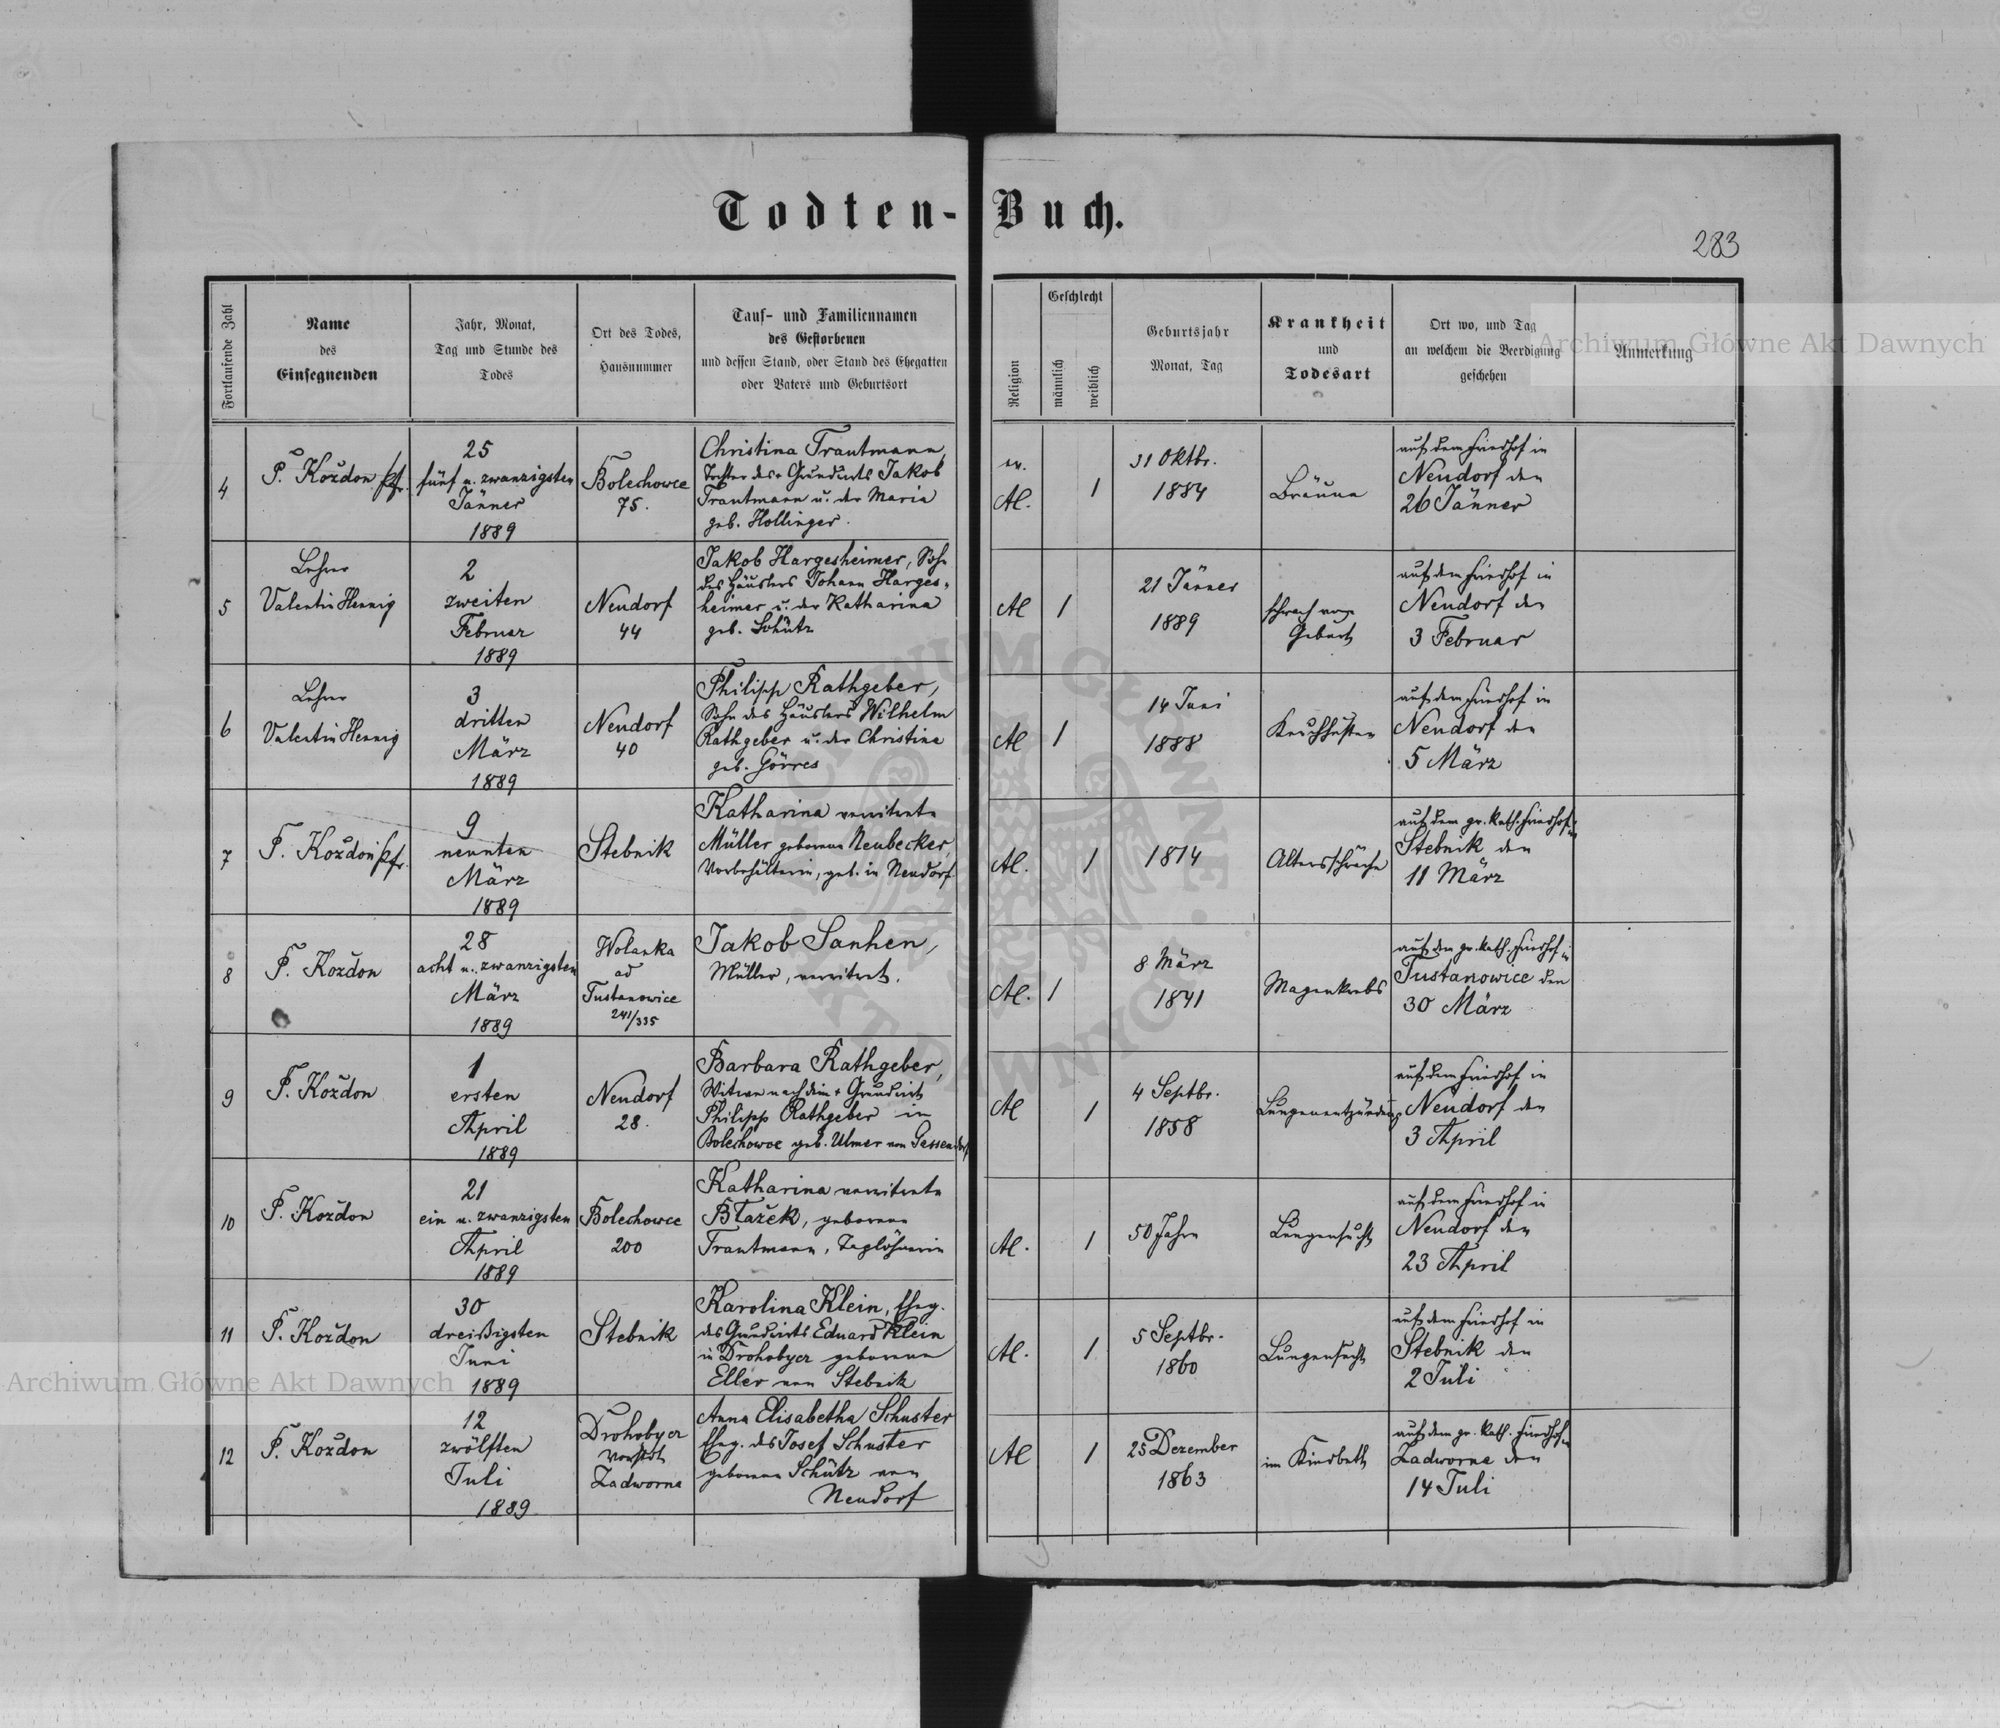 Todten-Buch.
283
Fortlaufende Zahl
Name
des
Einsegnenden
Jahr, Monat,
Tag und Stunde des
Todes
Ort des Todes,
Hausnummer
Tauf- und Familiennamen
des Gestorbenen
und dessen Stand, oder Stand des Ehegatten
oder Vaters und Geburtsort
Religion
Geschlecht
männlich
weiblich
Geburtsjahr
Monat, Tag
Krankheit
und
Todesart
Ort wo, und Tag
an welchem die Beerdigung
geschehen
Anmerkung
4
F. Koždon pfr.
25
fünf u. zwanzigsten
Jänner
1889
Bolechowce
75.
Christina Trautmann,
Tochter des Grundwirts Jakob
Trautmann u. der Maria
geb. Hollinger.
ev.
AC.
1
31 Oktbr.
1884
Bräune
auf dem Friedhof in
Neudorf den
26 Jänner
5
Lehrer
Valentin Hennig
2
zweiten
Februar
1889
Neudorf
44
Jakob Hargesheimer, Sohn
des Häuslers Johann Harges-
heimer u. der Katharina
geb. Schütz
AC
1
21 Jänner
1889
schwach von
Geburt
auf dem Friedhof in
Neudorf den
3 Februar
6
Lehrer
Valentin Hennig
3
dritten
März
1889
Neudorf
40
Philipp Rathgeber,
Sohn des Häuslers Wilhelm
Rathgeber u. der Christine
geb. Görres
AC
1
14 Juni
1888
Keuchhusten
auf dem Friedhof in
Neudorf den
5 März
7
F. Koždon pfr.
9
neunten
März
1889
Stebnik
Katharina verwitwete
Müller geborene Neubecker,
Vorbehälterin, geb. in Neudorf
AC.
1
1814
Altersschwäche
auf dem gr. kath. Friedhof in
Stebnik den
11 März
8
F. Koždon
28
acht u. zwanzigsten
März
1889
Wolanka
ad
Tustanowice
241/335
Jakob Sanhen,
Müller, verwitwet.
AC.
1
8 März
1841
Magenkrebs
auf dem gr. kath. Friedhof in
Tustanowice den
30 März
9
F. Koždon
1
ersten
April
1889
Neudorf
28.
Barbara Rathgeber,
Witwe nach dem + Grundwirt
Philipp Rathgeber in
Bolechowce geb. Ulmer von Gassendorf
AC
1
4 Septbr.
1858
Lungenentzündung
auf dem Friedhof in
Neudorf den
3 April
10
F. Koždon
21
ein u. zwanzigsten
April
1889
Bolechowce
200
Katharina verwitwete
Blažek, geborene
Trautmann, Taglöhnerin
AC.
1
50 Jahre
Lungensucht
auf dem Friedhof in
Neudorf den
23 April
11
F. Koždon
30
dreißigsten
Juni
1889
Stebnik
Karolina Klein, Eheg.
des Grundwirts Eduard Klein
in Drohobycz geborene
Eller von Stebnik
AC.
1
5 Septbr.
1860
Lungensucht
auf dem Friedhof in
Stebnik den
2 Juli
12
F. Koždon
12
zwölften
Juli
1889
Drohobycz
Vorstdt
Zadworna
Anna Elisabetha Schuster
Eheg. des Josef Schuster
geborene Schütz von
Neudorf
AC
1
25 Dezember
1863
im Kindbett
auf dem gr. kath. Friedhof in
Zadworna den
14 Juli
Archiwum Główne Akt Dawnych
Archiwum Główne Akt Dawnych
ARCHIWUM GŁÓWNE AKT DAWNYCH